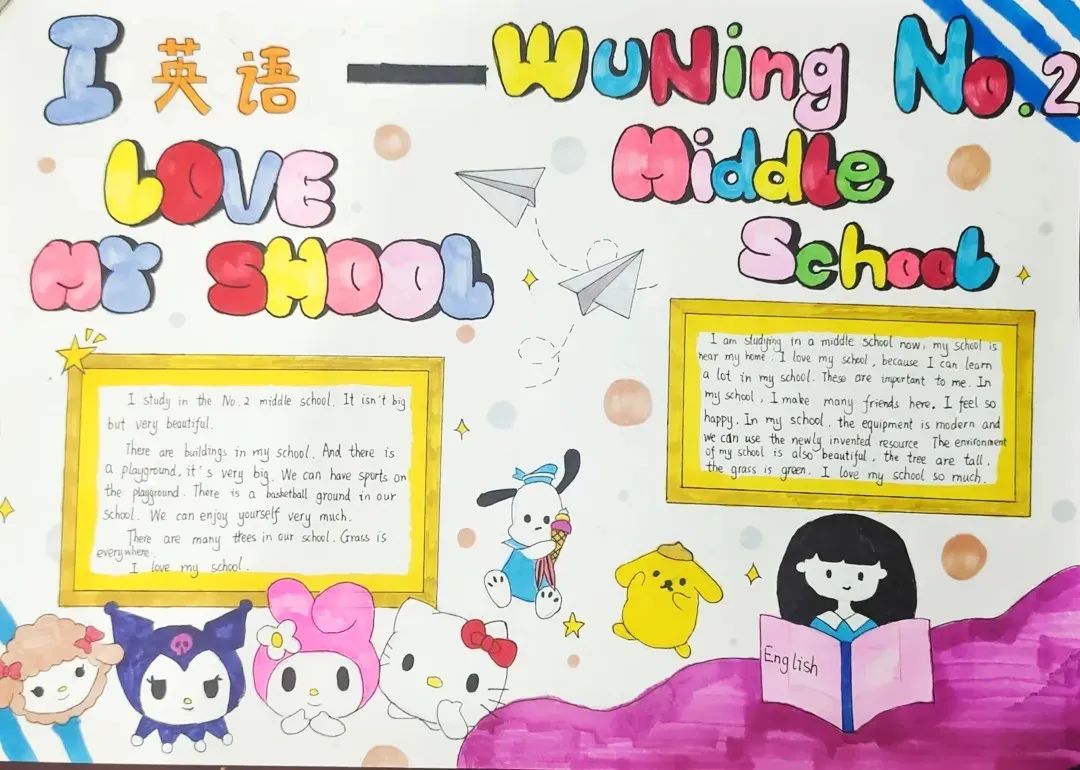 I 英语 —— WuNing No.2
LOVE
MY SHOOL
Middle
School
I study in the No.2 middle school. It isn't big
but very beautiful.
There are buildings in my school. And there is
a playground, it's very big. We can have sports on
the playground. There is a basketball ground in our
school. We can enjoy yourself very much.
There are many trees in our school. Grass is
everywhere.
I love my school.
I am studying in a middle school now, my school is
near my home. I love my school, because I can learn
a lot in my school. These are important to me. In
my school, I make many friends here. I feel so
happy. In my school, the equipment is modern and
we can use the newly invented resource The environment
of my school is also beautiful, the tree are tall,
the grass is green. I love my school so much.
English